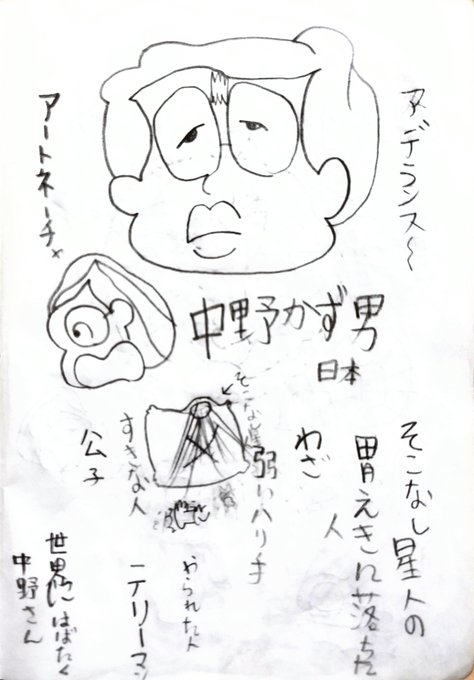 アデランス〜
アートネーチャ
中野かず男
日本
そこなし星人の
胃えきに落ちた
人
わざ
弱いハリ手
そこなし星
すきな人
公子
やられた人
ーテリーマン
世界にはばたく
中野さん